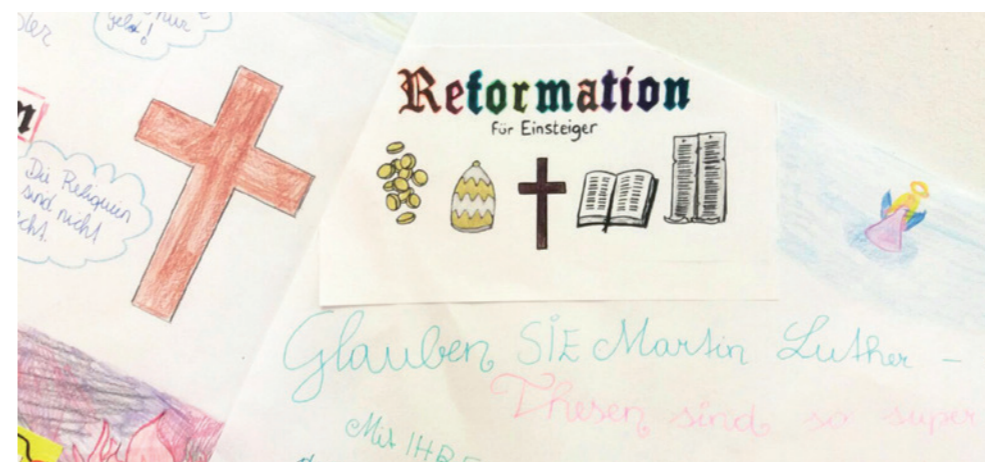 geld!
Reformation
Für Einsteiger
Die Reliquien
sind nicht
Glauben SIE Martin Luther –
Thesen sind so super
Mit IHRE